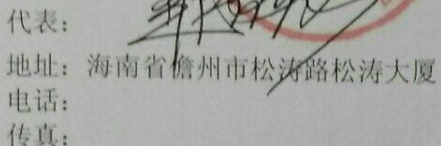 代表：
地址：海南省儋州市松涛路松涛大厦
电话：
传真：